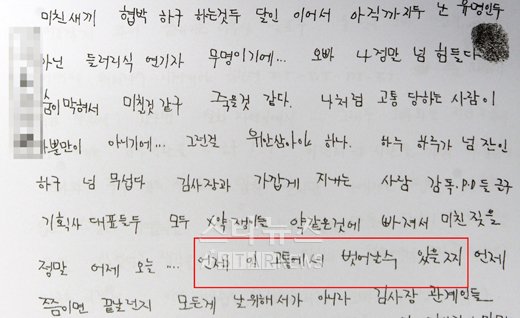 미친새끼 협박 하구 하는것두 달인 이어서 아직까지두 난 유명인두
아닌 들러리식 연기자 무명이기에... 오빠 나 정말 넘 힘들다
숨이막혀서 미친것 같구 죽을것 같다. 나처럼 고통 당하는 사람이
나뿐만이 아니기에... 그런걸 위안삼아야 하나. 하루 하루가 넘 잔인
하구 넘 무섭다 김사장과 가깝게 지내는 사람 감독.P.D들 금구
기획사 대표들두 모두 X약쟁이들 약같은것에 빠져서 미친짓을
정말 어제 오늘... 언제 이 고통에서 벗어날수 있을찌 언제
쯤이면 끝날런지 모든게 날위해서가 아니라 김사장 관계인들
스타뉴스
STARNEWS